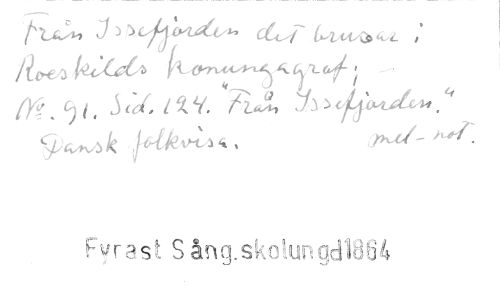 Från Issefjorden det brusar i
Roeskilds konungagraf; –
No. 91. Sid. 124. "Från Issefjorden."
Dansk folkvisa. mel-not.
Fyrast Sång.skolungd1864